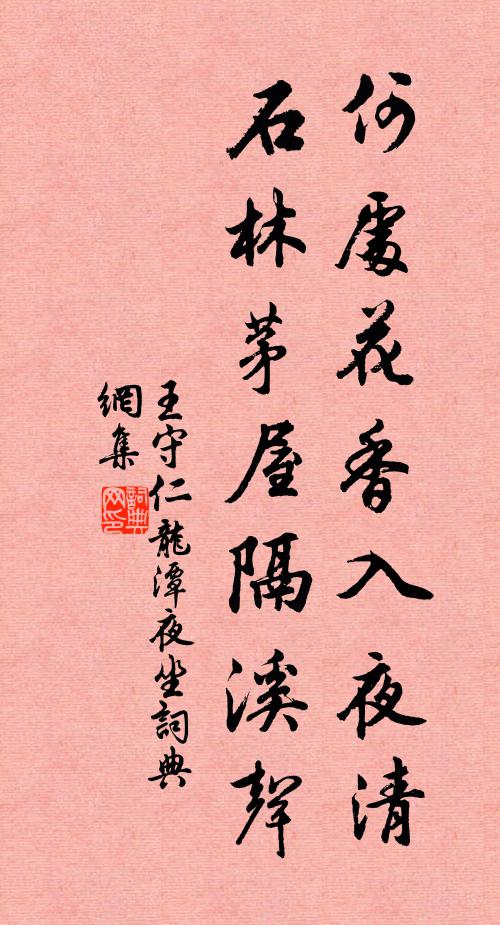 何處花香入夜清
石林茅屋隔溪聲
王守仁龍潭夜坐詞典
網集
詞典
网印